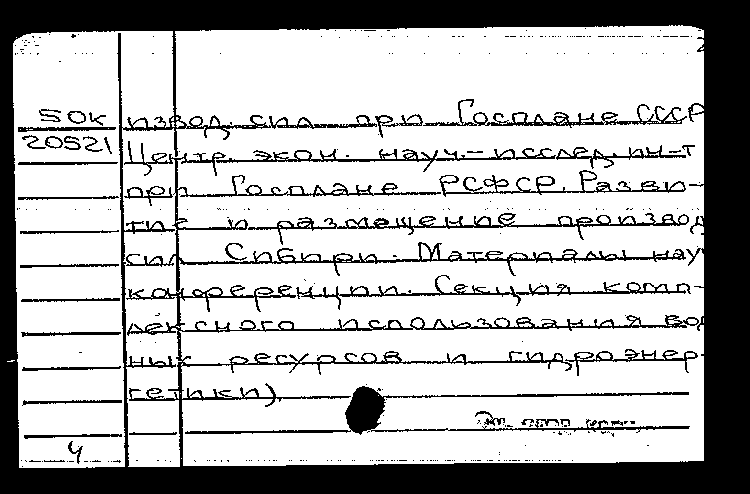 50к извод. сил при Госплане СССР
20521 Центр. экон. науч.-исслед. ин-т
при Госплане РСФСР. Разви-
тие и размещение производ
сил Сибири. Материалы науч
конференции. Секция комп-
лексного использования вод
ных ресурсов и гидроэнер-
гетики)
4